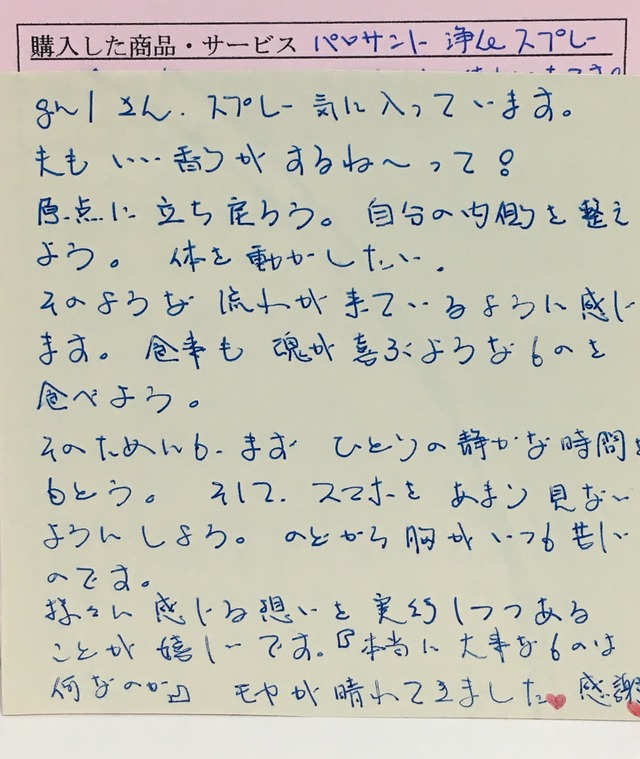 購入した商品・サービス パロサント 浄化スプレー
さん、スプレー気に入っています。
夫も いい香りがするね〜って!
原点に立ち戻ろう。自分の内側を整え
よう。体を動かしたい。
そのような流れが来ているように感じ
ます。食事も魂が喜ぶようなものを
食べよう。
そのためにも、まず ひとりの静かな時間を
もとう。そして、スマホをあまり見ない
ようにしよう。のどから胸がいつも苦しい
のです。
様々に感じる想いを実行しつつある
ことが嬉しいです。『本当に大事なものは
何なのか』モヤが晴れてきました❤感謝